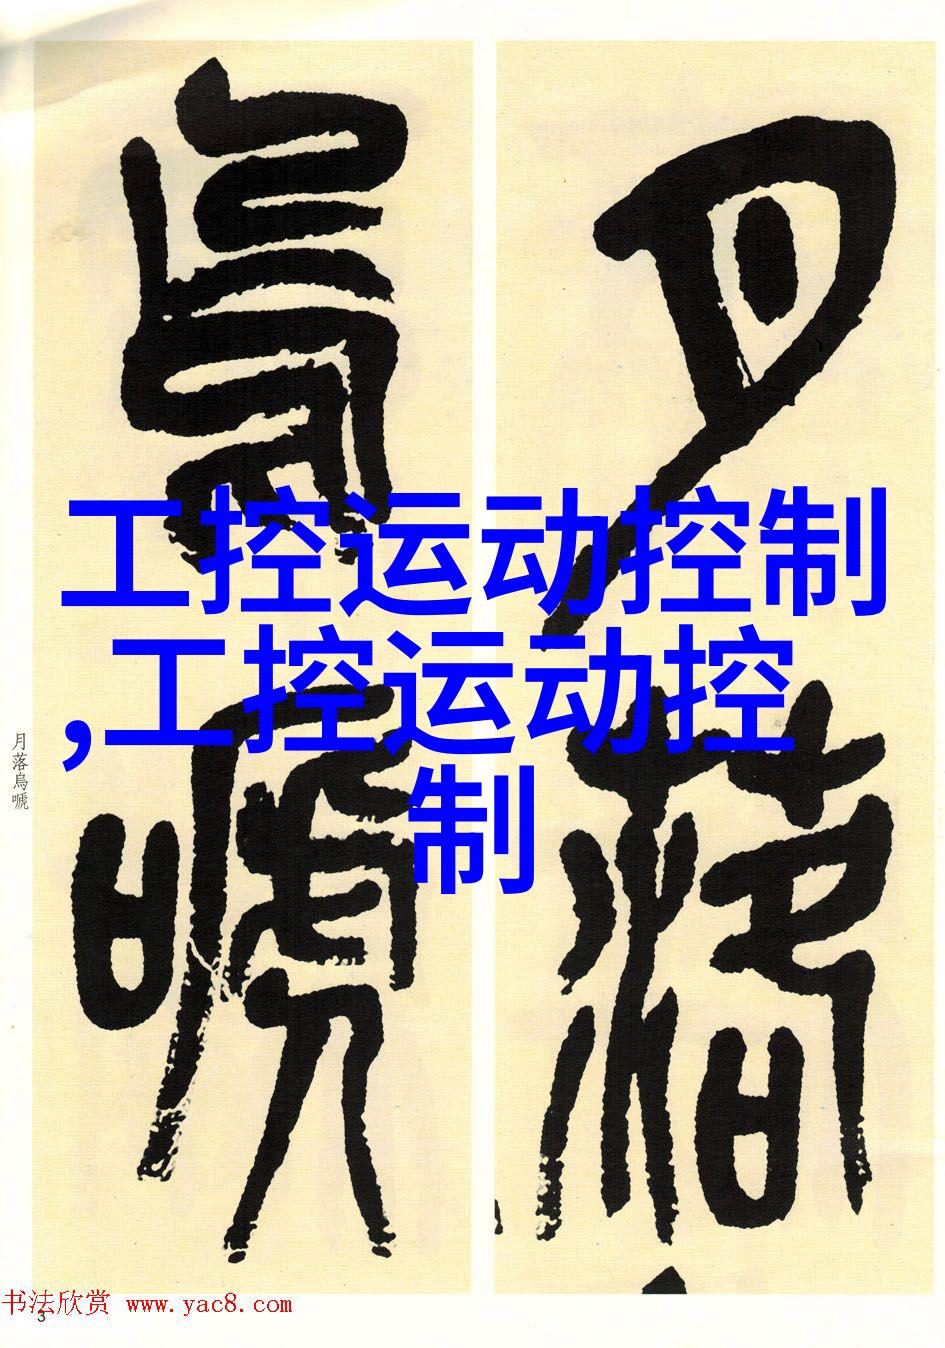 月落
烏嗁
工控运动控制
,工控运动控
制
月落烏嗁
书法欣赏 www.yac8.com
3